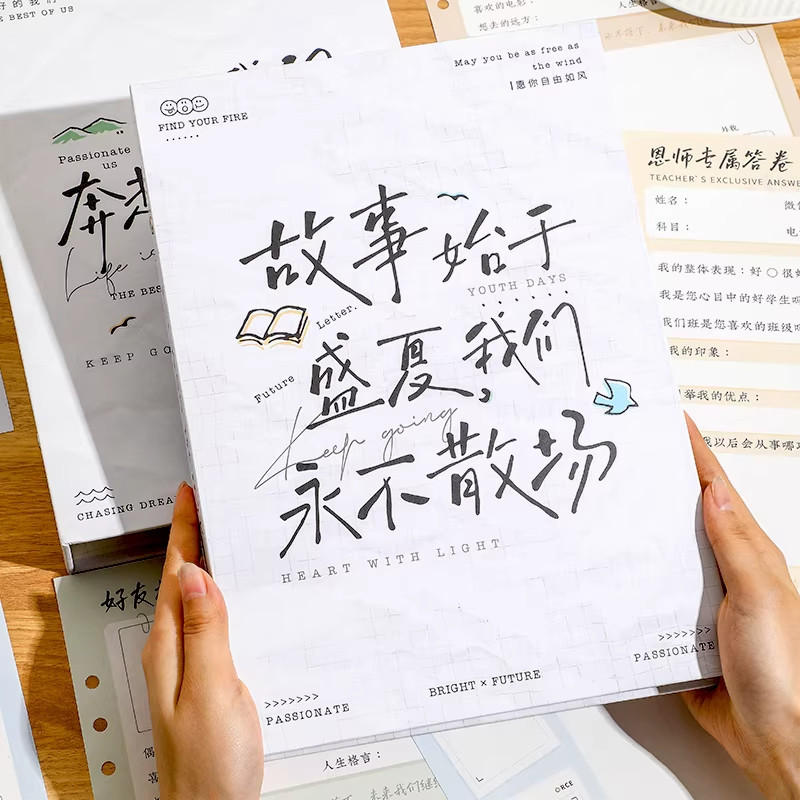 May you be as free as
the wind
愿你自由如风
FIND YOUR FIRE
故事始于
YOUTH DAYS
Letter.
盛夏,我们
Future
Keep going
永不散场
HEART WITH LIGHT
>>>>>>>
PASSIONATE
BRIGHT × FUTURE
>>>>>>>
PASSIONATE
好的我们
THE BEST OF US
Passionate
us
奔赴
Life is
THE BES
KEEP GO
CHASING DREA
喜欢的电影：
人生格言：
想去的远方：
恩师专属答卷
TEACHER'S EXCLUSIVE ANSWE
姓名：
科目：
我的整体表现：好 ○ 很
我是您心目中的好学生
我们班是您喜欢的班级
的印象：
举我的优点：
我以后会从事哪
好友
偶
喜
人生格言：
未来我们继续
ORCE